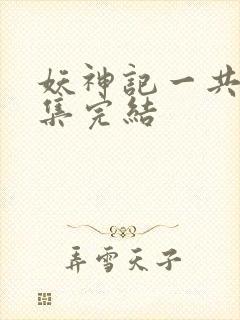 妖神記一共
集完結
弄雪天子